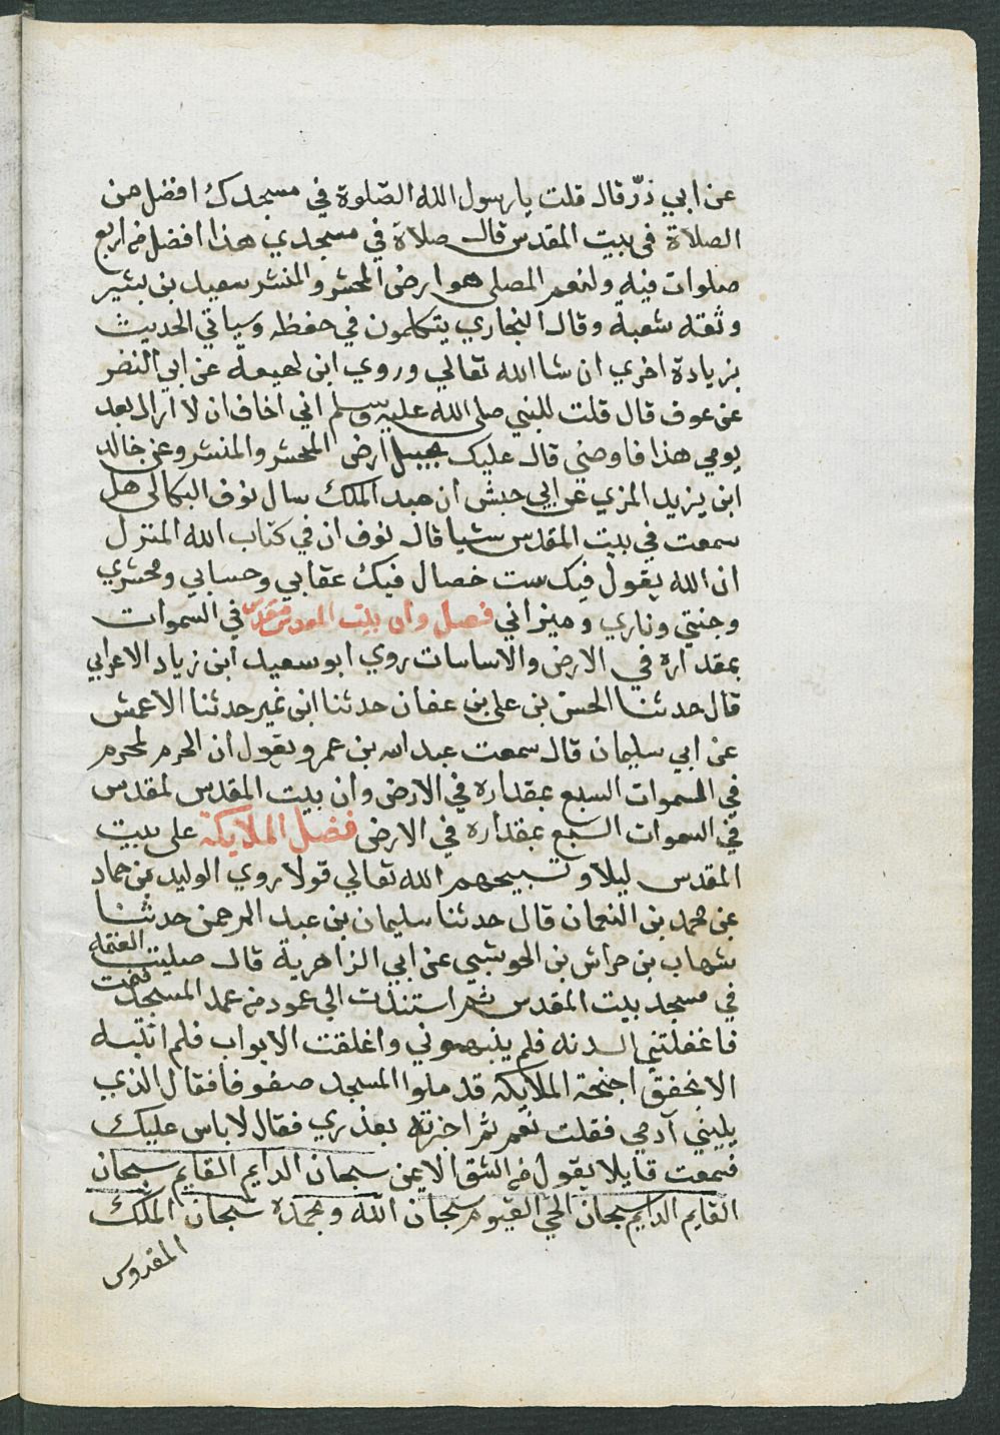 عن ابي ذرّ قال قلت يا رسول الله الصّلوة في مسجدك افضل من
الصلاة في بيت المقدس قال صلاة في مسجدي هذا افضل من اربع
صلوات فيه ولنعم المصلى هو ارض المحشر والمنشر سعيد بن بشير
وثقه شعبة وقال البخاري يتكلمون في حفظه وسياتي الحديث
بزيادة اخري ان شا الله تعالي وروي ابن لهيعة عن ابي النضر
عن عوف قال قلت للنبي صلى الله عليه وسلم اني اخاف ان لا اراك بعد
يومي هذا فاوصني قال عليك بجبل ارض المحشر والمنشر وعن خالد
ابن يزيد المزي عن ابي حبش ان عبد الملك سال نوف البكالي هل
سمعت في بيت المقدس شيا قال نوف ان في كتاب الله المنزل
ان الله يقول فيك ست خصال فيك عقابي وحسابي ومحشري
وجنتي وناري وميزاني فصل وان بيت المقدس مقدس في السموات
بمقداره في الارض والاساسات روي ابو سعيد ابن زياد الاعرابي
قال حدثنا الحسن بن على بن عفان حدثنا ابن نمير حدثنا الاعمش
عن ابي سليمان قال سمعت عبد الله بن عمرو يقول ان الحرم لمحرم
في السموات السبع بمقداره في الارض وان بيت المقدس لمقدس
في السموات السبع بمقداره في الارض فضل الملايكة على بيت
المقدس ليلا وتسبيحهم الله تعالي قولا روي الوليد بن حماد
عن محمد بن النعمان قال حدثنا سليمان بن عبد الرحمن حدثنا
شهاب بن حراش بن الحوشبي عن ابي الزاهرية قال صليت العتمة
في مسجد بيت المقدس ثم استندت الي عمود من عمد المسجد فنمت
فاغفلتني السدنه فلم ينبهوني واغلقت الابواب فلم انتبه
الا بخفق اجنحة الملايكه قد ملوا المسجد صفوفا فقال الذي
يليني آدمي فقلت نعم ثم اخبرته بعذري فقال لا باس عليك
فسمعت قايلا يقول من الشق الايمن سبحان الدايم القايم سبحان
القايم الدايم سبحان الحي القيوم سبحان الله وبحمده سبحان الملك
القدوس